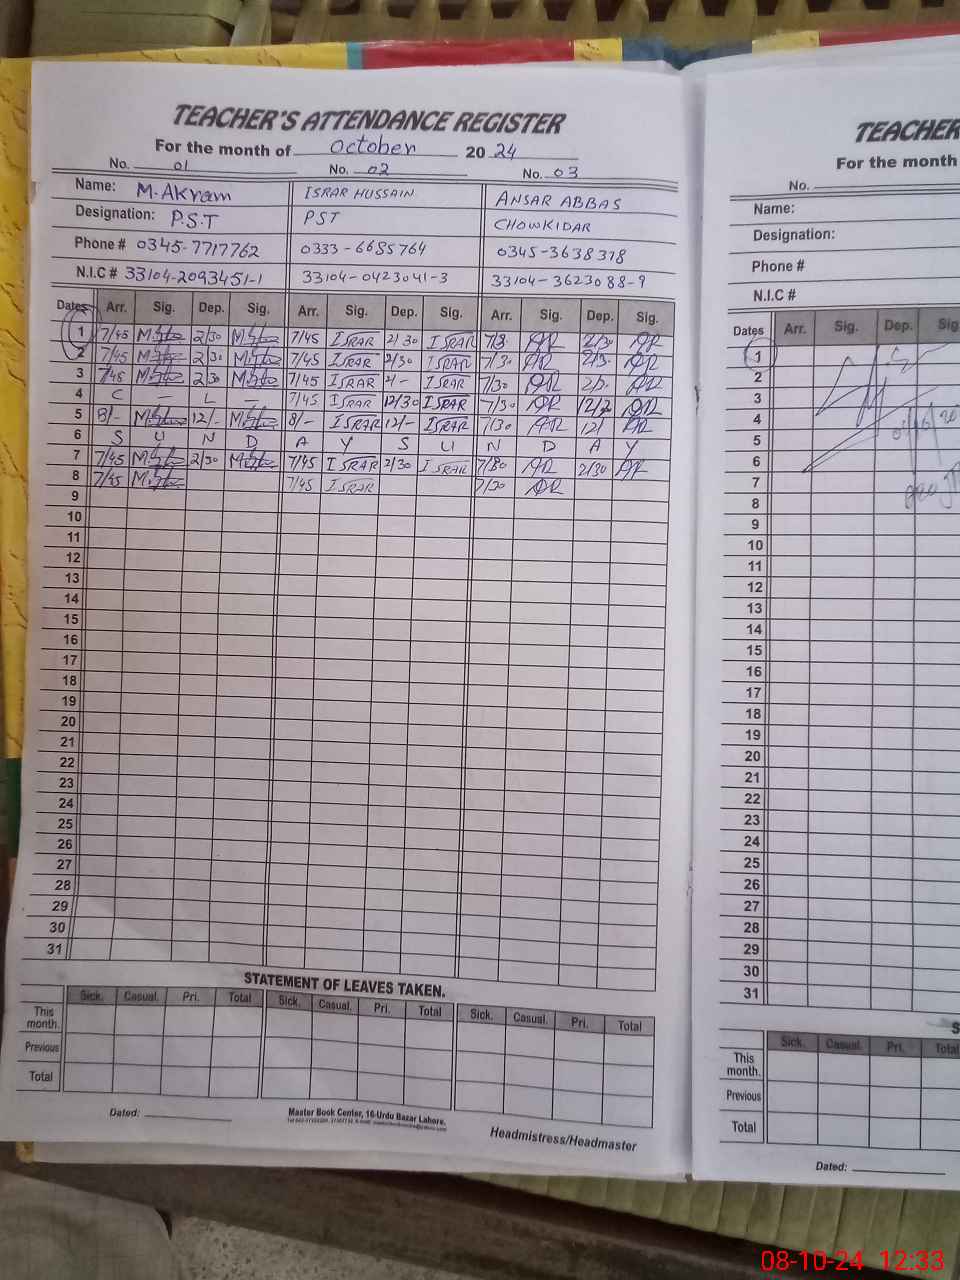 TEACHER'S ATTENDANCE REGISTER
For the month of October 2024
No. 01 No. 02 No. 03
Name: M.Akram ISRAR HUSSAIN ANSAR ABBAS
Designation: P.S.T PST CHOWKIDAR
Phone # 0345-7717762 0333-6685764 0345-3638378
N.I.C # 33104-2093451-1 33104-0423041-3 33104-3623088-9
Dates Arr. Sig. Dep. Sig. Arr. Sig. Dep. Sig. Arr. Sig. Dep. Sig.
1 7/45 2/30 7/45 ISRAR 2/30 ISRAR
2 7/45 2/30 7/45 ISRAR 2/30 ISRAR 7/30
3 7/45 2/30 7/45 ISRAR 2/- ISRAR 7/30
4 C — L — 7/45 ISRAR 12/30 ISRAR 7/30
5 8/- 12/- 8/- ISRAR 12/- ISRAR 7/30
6 S U N D A Y S U N D A Y
7 7/45 2/30 7/45 ISRAR 2/30 ISRAR 2/30
8 7/45 7/45 ISRAR
9
10
11
12
13
14
15
16
17
18
19
20
21
22
23
24
25
26
27
28
29
30
31
STATEMENT OF LEAVES TAKEN.
Sick. Casual. Pri. Total Sick. Casual. Pri. Total Sick. Casual. Pri. Total
This month.
Previous
Total
Dated:
Master Book Center, 16-Urdu Bazar Lahore.
Headmistress/Headmaster
TEACHER
For the month
No.
Name:
Designation:
Phone #
N.I.C #
Dates Arr. Sig. Dep. Sig
1
2
3
4
5
6
7
8
9
10
11
12
13
14
15
16
17
18
19
20
21
22
23
24
25
26
27
28
29
30
31
S
Sick. Casual. Pri. Total
This month.
Previous
Total
Dated:
08-10-24 12:33